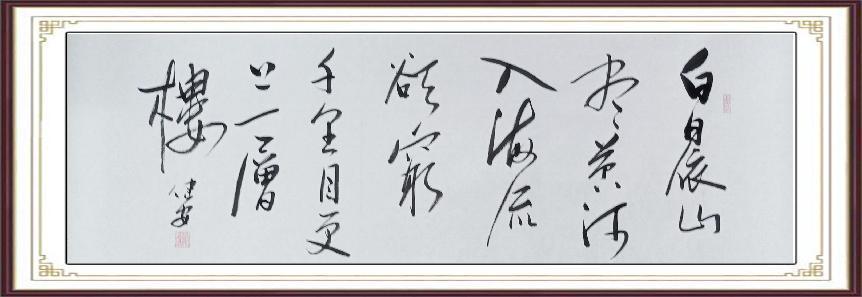 白日依山
尽黄河
入海流
欲窮
千里目更
上一層
樓